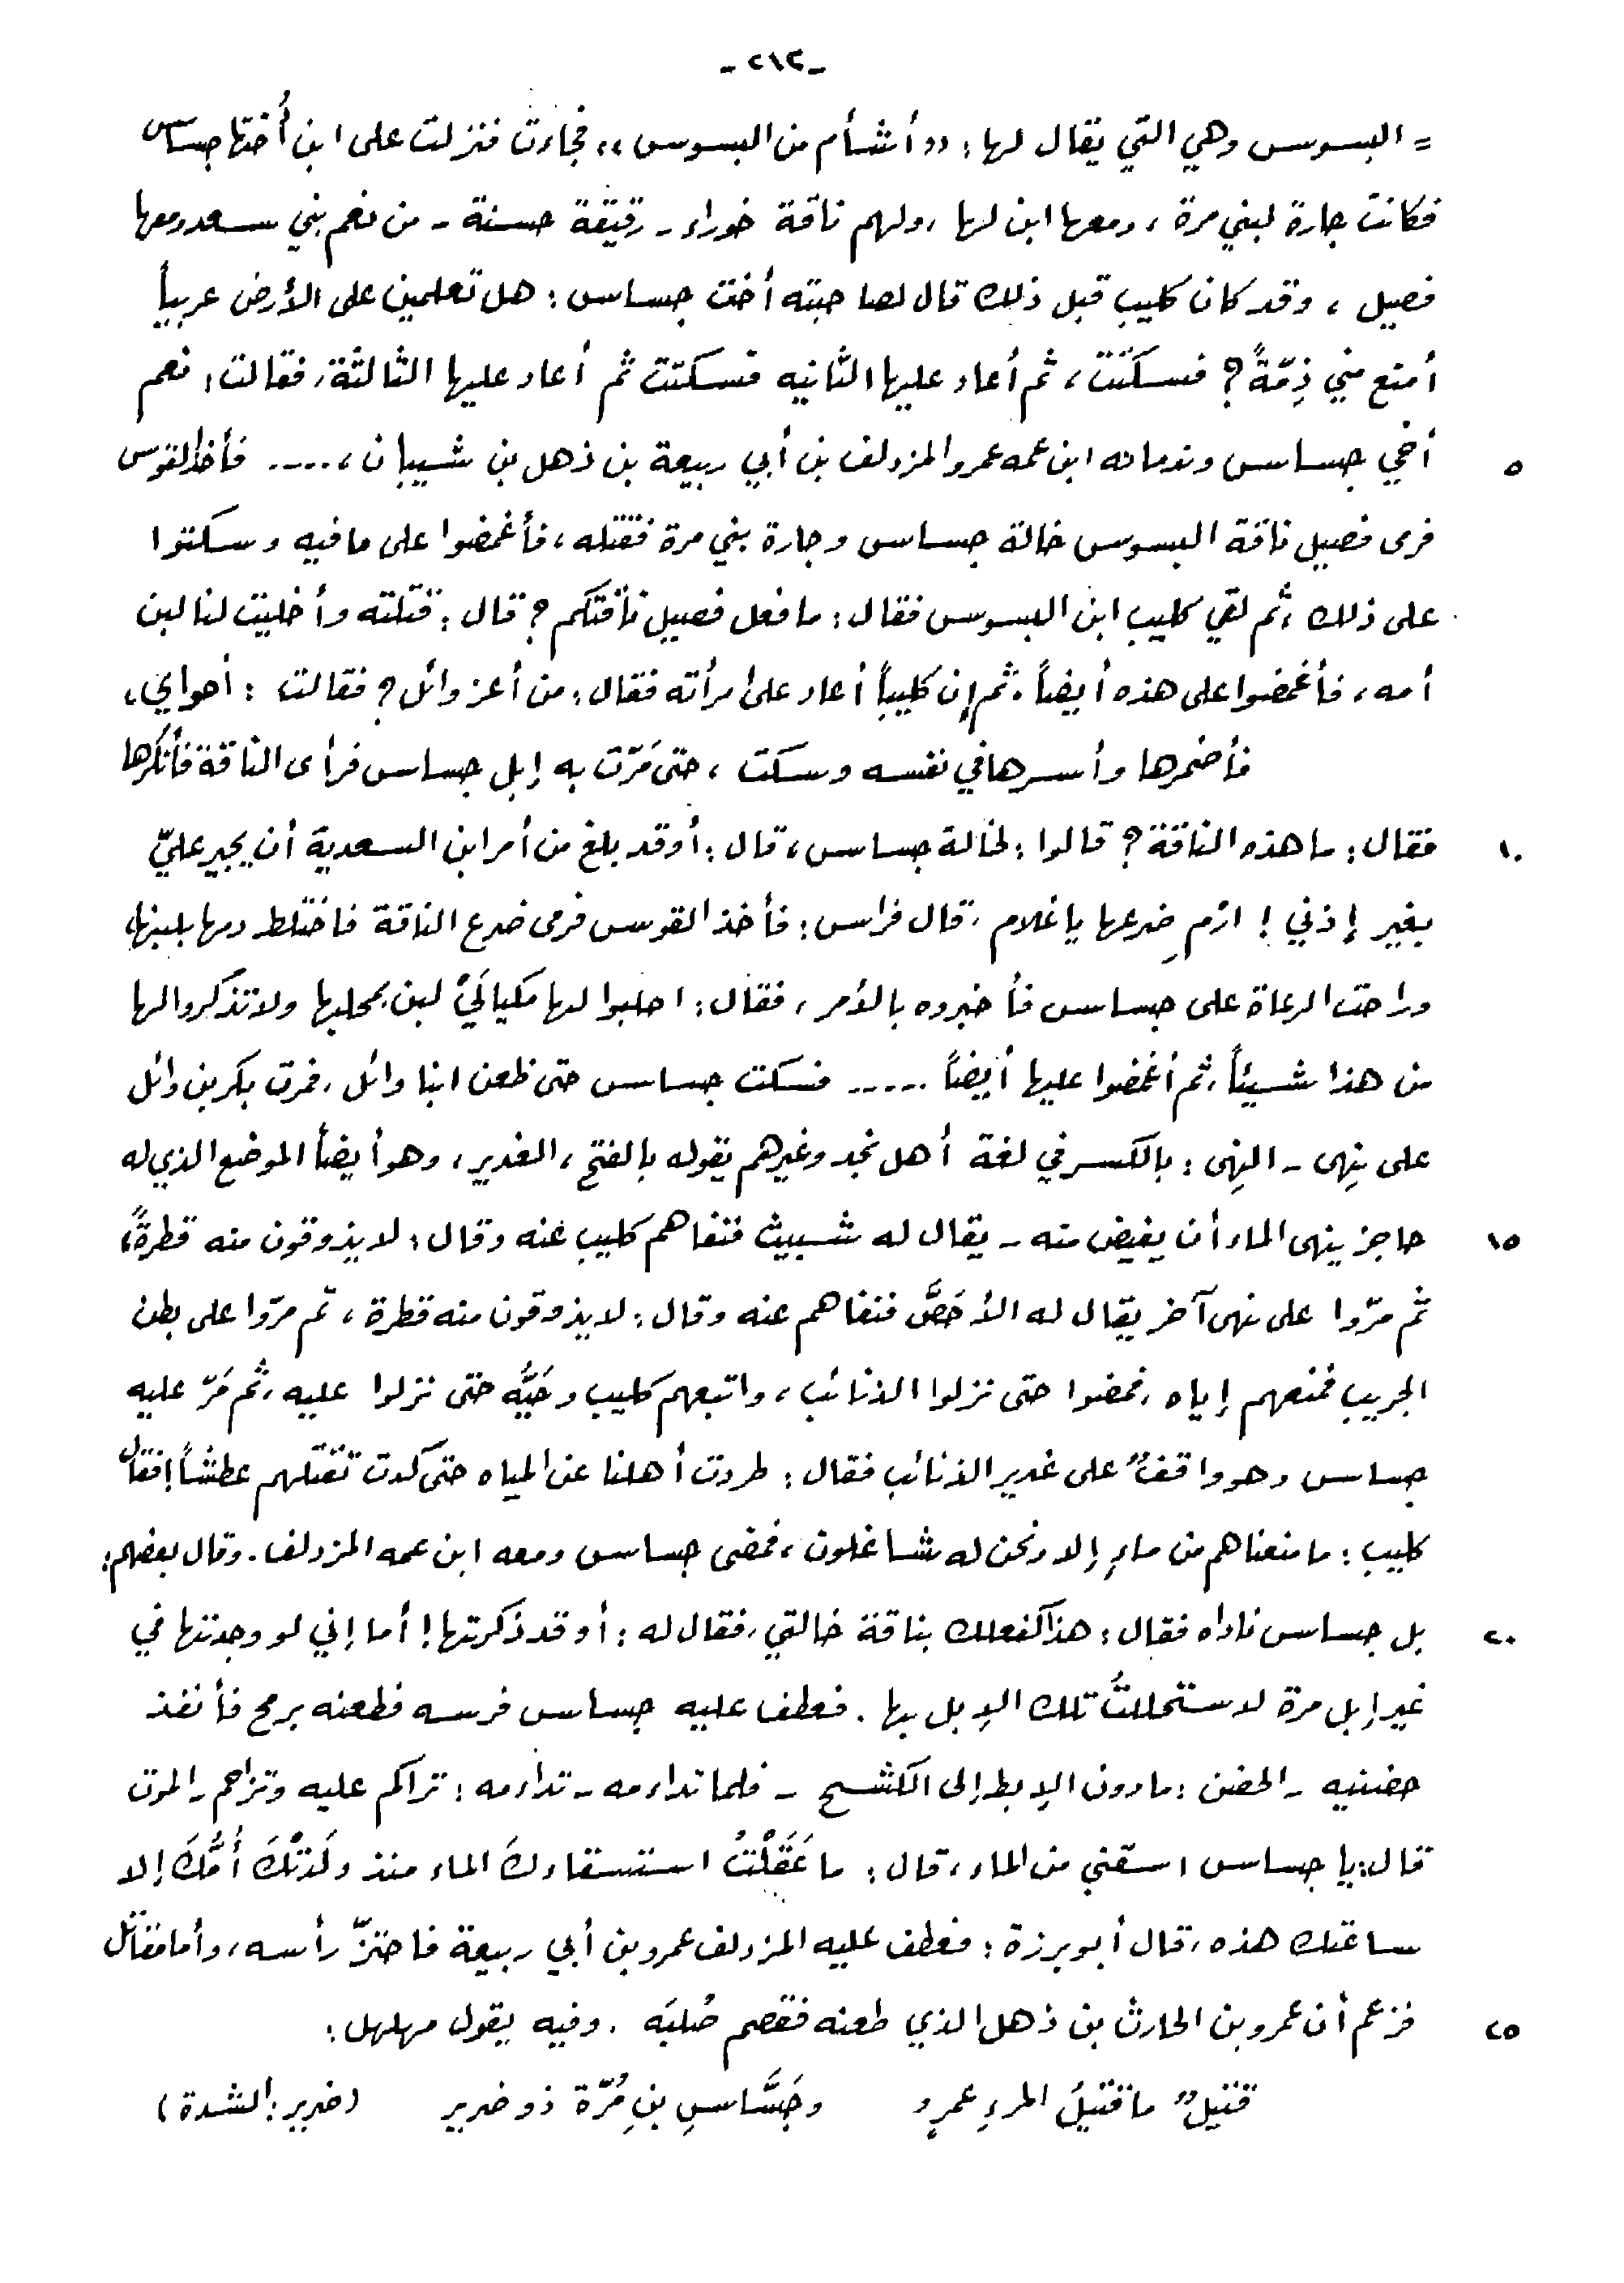 -٢١٣-
= البسوس وهي التي يقال لها: «أشأم من البسوس»، فجاءت فنزلت على ابن أُختها جساس
فكانت جارة لبني مرة، ومعها ابن لها، ولهم ناقة خوراء - رقيقة حسنة - من نعم بني سعد ومعها
فصيل، وقد كان كليب قبل ذلك قال لصاحبته أخت جساس: هل تعلمين على الأرض عربياً
أمنع مني ذِمّةً؟ فسكَتَت، ثم أعاد عليها الثانيه فسكتت ثم أعاد عليها الثالثة، فقالت: نعم
٥ أخي جساس وندمانه ابن عمه عمرو المزدلف بن أبي ربيعة بن ذهل بن شيبان، .... فأخذ القوس
فرمى فصيل ناقة البسوس خالة جساس وجارة بني مرة فقتله، فأغمضوا على ما فيه وسكتوا
على ذلك، ثم لقي كليب ابن البسوس فقال: ما فعل فصيل ناقتكم؟ قال: قتلته وأخليت لنا لبن
أمه، فأغمضوا على هذه أيضاً. ثم إن كليباً أعاد على امرأته فقال: من أعز وائل؟ فقالت: أخواي،
فأضمرها وأسرها في نفسه وسكت، حتى مَرّت به إبل جساس فرأى الناقة فأنكرها
١٠ فقال: ما هذه الناقة؟ قالوا: لخالة جساس، قال: أوقد بلغ من أمر ابن السعدية أن يجير عليّ
بغير إذني! ارْمِ ضِرعها يا غلام، قال فراس: فأخذ القوس فرمى ضرع الناقة فاختلط دمها بلبنها،
وراحت الرعاة على جساس فأخبروه بالأمر، فقال: احلبوا لها مكيالَيْ لبن بمحلبها ولا تذكروا لها
من هذا شيئاً، ثم أغمضوا عليها أيضاً ..... فسكت جساس حتى ظعن ابنا وائل، فمرت بكر بن وائل
على نِهى - النِهى: بالكسر في لغة أهل نجد وغيرهم يقوله بالفتح، الغدير، وهو أيضاً الموضع الذي له
١٥ حاجز ينهى الماء أن يفيض منه - يقال له شبيث فنفاهم كليب عنه وقال: لا يذوقون منه قطرةً،
ثم مرّوا على نهى آخر يقال له الأحَصَّ فنفاهم عنه وقال: لا يذوقون منه قطرة، ثم مرّوا على بطن
الجريب فمنعهم إياه، فمضوا حتى نزلوا الذنائب، واتبعهم كليب وحَيُّه حتى نزلوا عليه، ثم مَرّ عليه
جساس وهو واقفٌ على غدير الذنائب فقال: طردت أهلنا عن المياه حتى كدت تقتلهم عطشاً! فقال
كليب: ما منعناهم من ماءٍ إلا ونحن له شاغلون، فمضى جساس ومعه ابن عمه المزدلف. وقال بعضهم:
٢٠ بل جساس ناداه فقال: هذا كفعلك بناقة خالتي، فقال له: أوقد ذكرتها! أما إني لو وجدتها في
غير إبل مرة لاستحللتُ تلك الإبل بها. فعطف عليه جساس فرسه فطعنه برمح فأنفذ
حضنيه - الحضن: ما دون الإبط إلى الكشح - فلما تداءمه - تداءمه: تراكم عليه وتزاحم - الموت
قال: يا جساس اسقني من الماء، قال: ما عَقَلْتُ استسقاءكَ الماء منذ ولَدتْكَ أُمُّكَ إلا
ساعتك هذه، قال أبو برزة: فعطف عليه المزدلف عمرو بن أبي ربيعة فاحتزّ رأسه، وأما مقاتل
٢٥ فزعم أن عمرو بن الحارث بن ذهل الذي طعنه فقصم صُلبَه. وفيه يقول مهلهل:
قتيلٌ ما قتيلُ المرءِ عمرٍو وجَسَّاسِ بنِ مُرّة ذو ضرير (ضرير: الشدة)